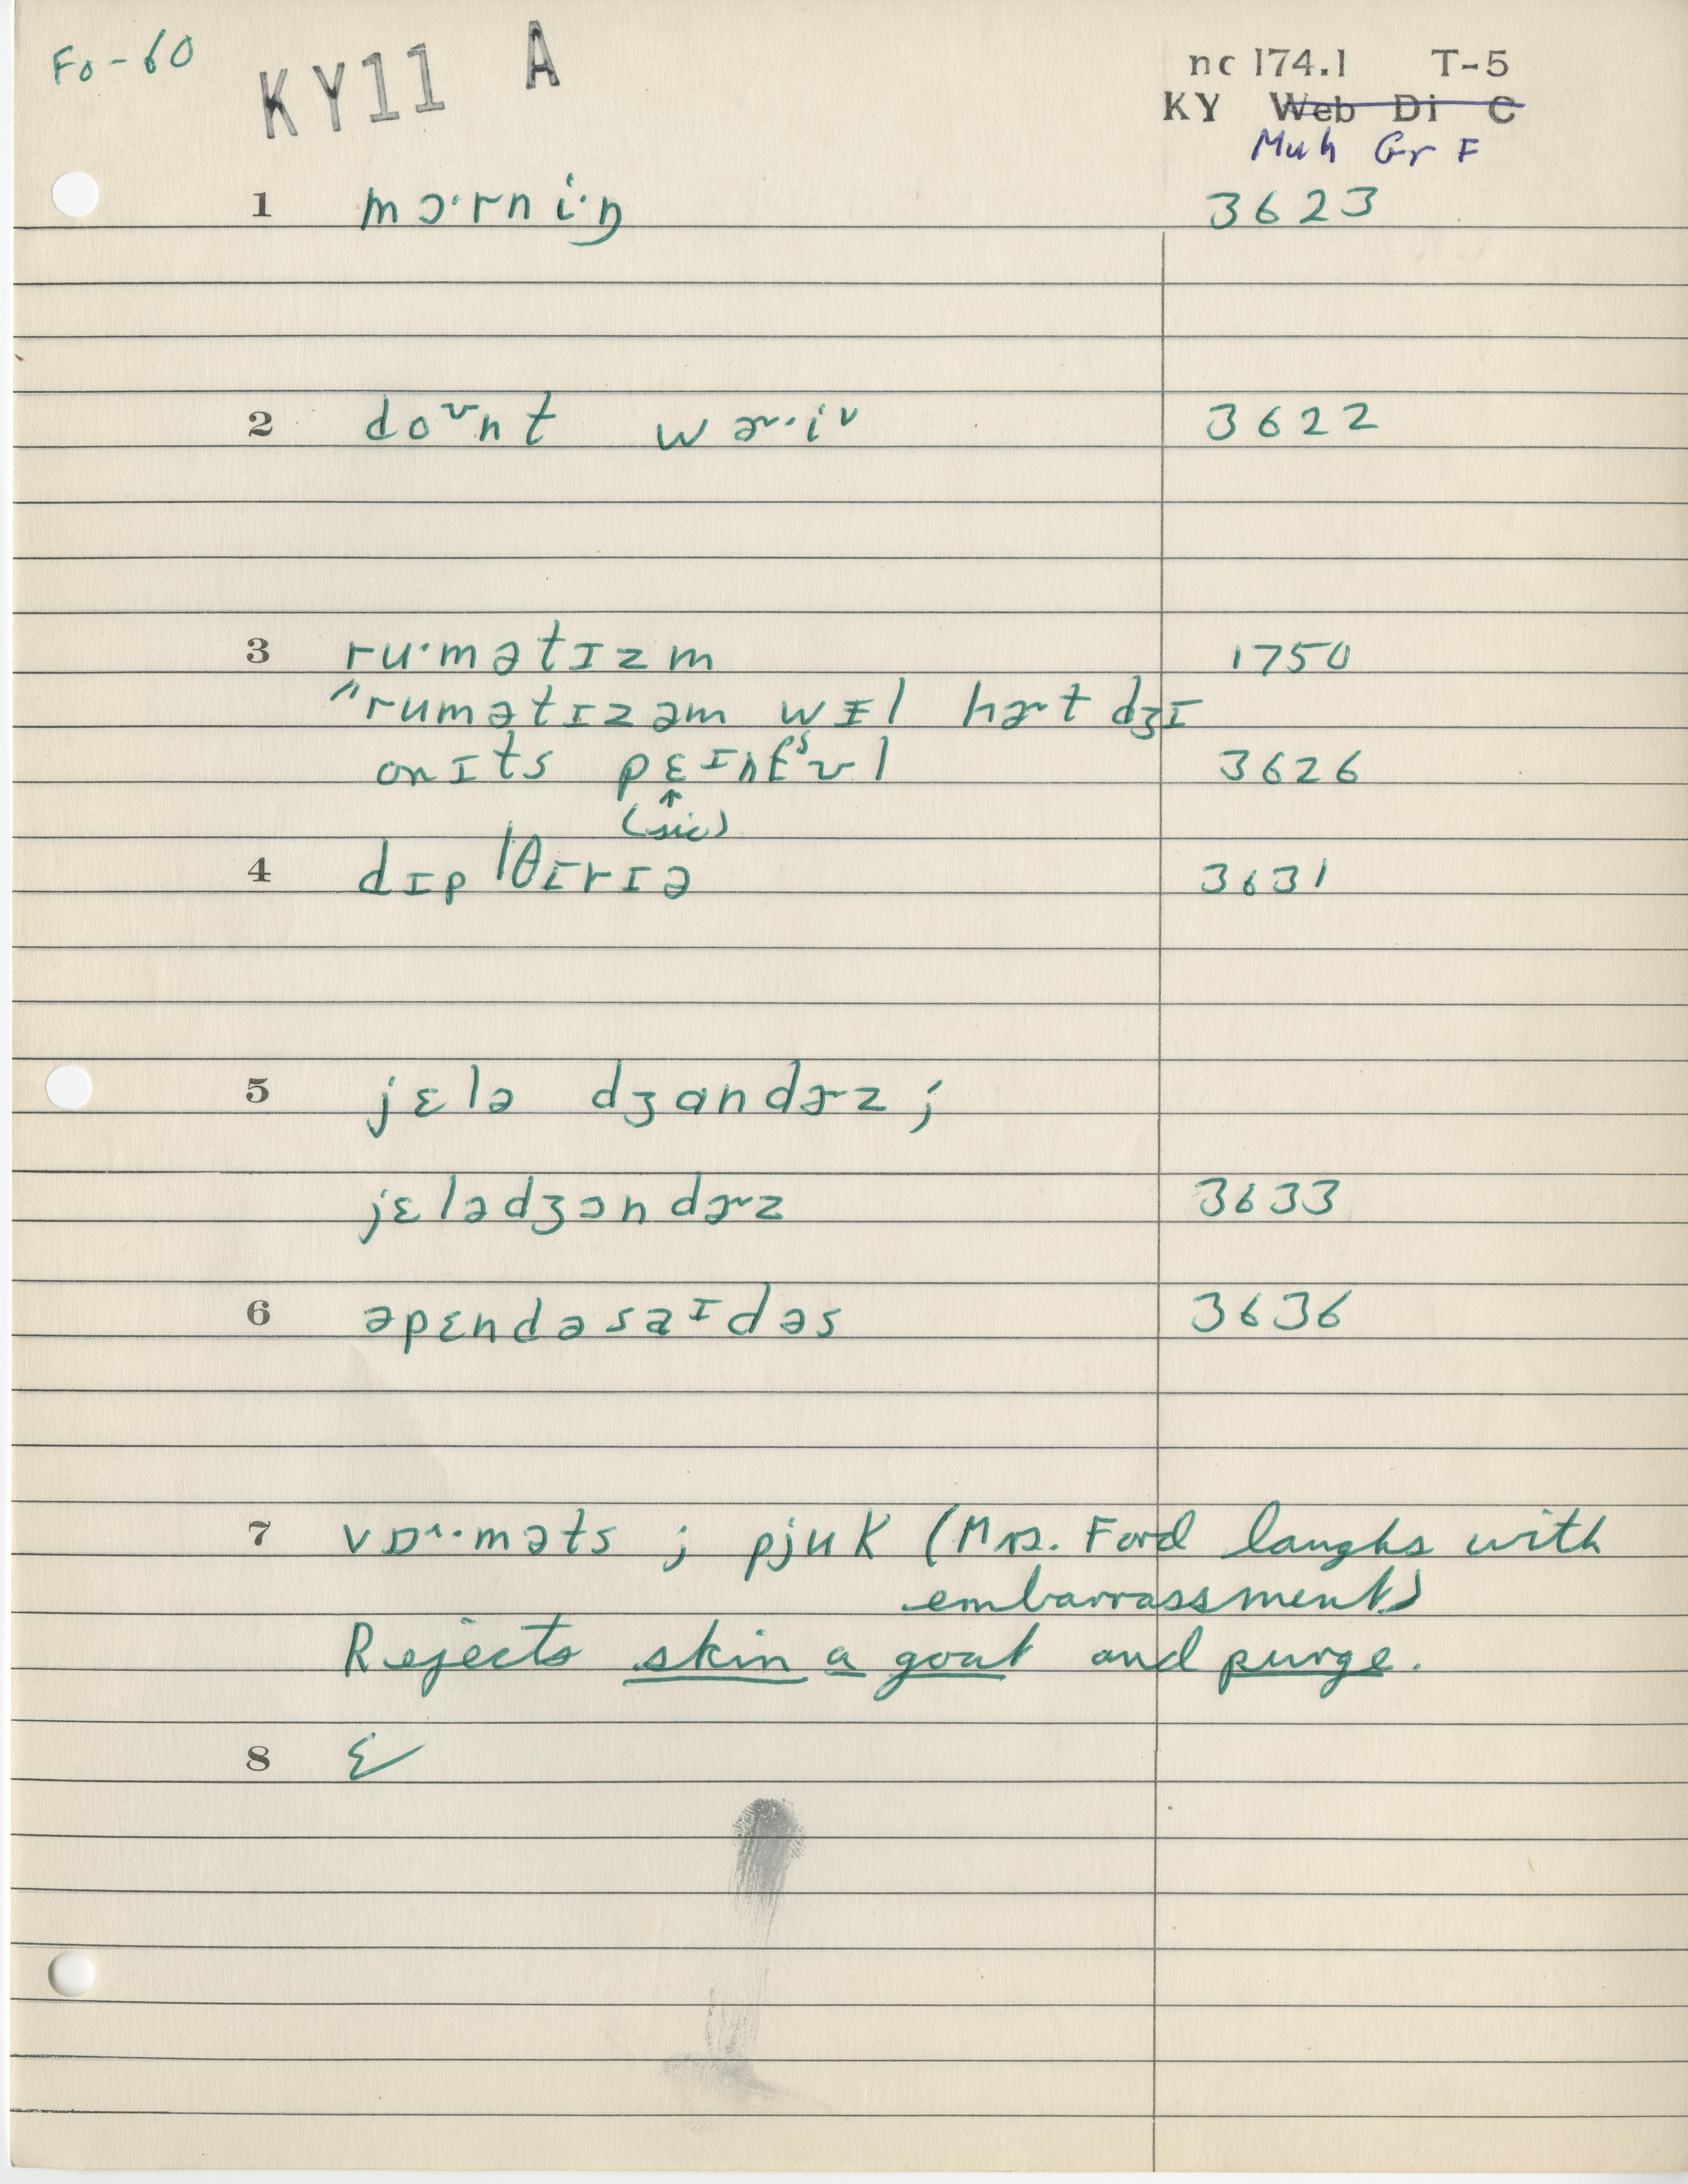 Fo-60 KY11 A nc 174.1 T-5
KY Web Di C
Muh Gr F
1 mɔ·rni·ŋ 3623
2 doᶷnt wɚ·iᵛ 3622
3 ru·mətɪzm 1750
"rumətɪzəm wɪl hɚt dʒɪ
onɪts 3626
(sic)
4 dɪpˈθɪrɪə 3631
5 jɛlə dʒɑndɚz;
jɛlədʒɔndɚz 3633
6 əpɛndəsaᶦdəs 3636
7 vɒ^·məts ; pjuk (Mrs. Ford laughs with
embarrassment)
Rejects skin a goat and purge.
8 Ɛ